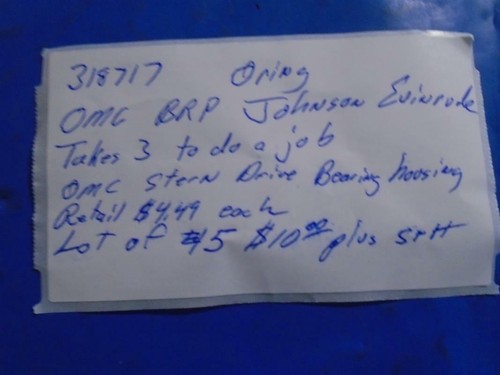 318717 Oring
OMC BRP Johnson Evinrude
Takes 3 to do a job
OMC Stern Drive Bearing hoosing
Retail $4.49 each
Lot of 45 $10.00 plus S+H